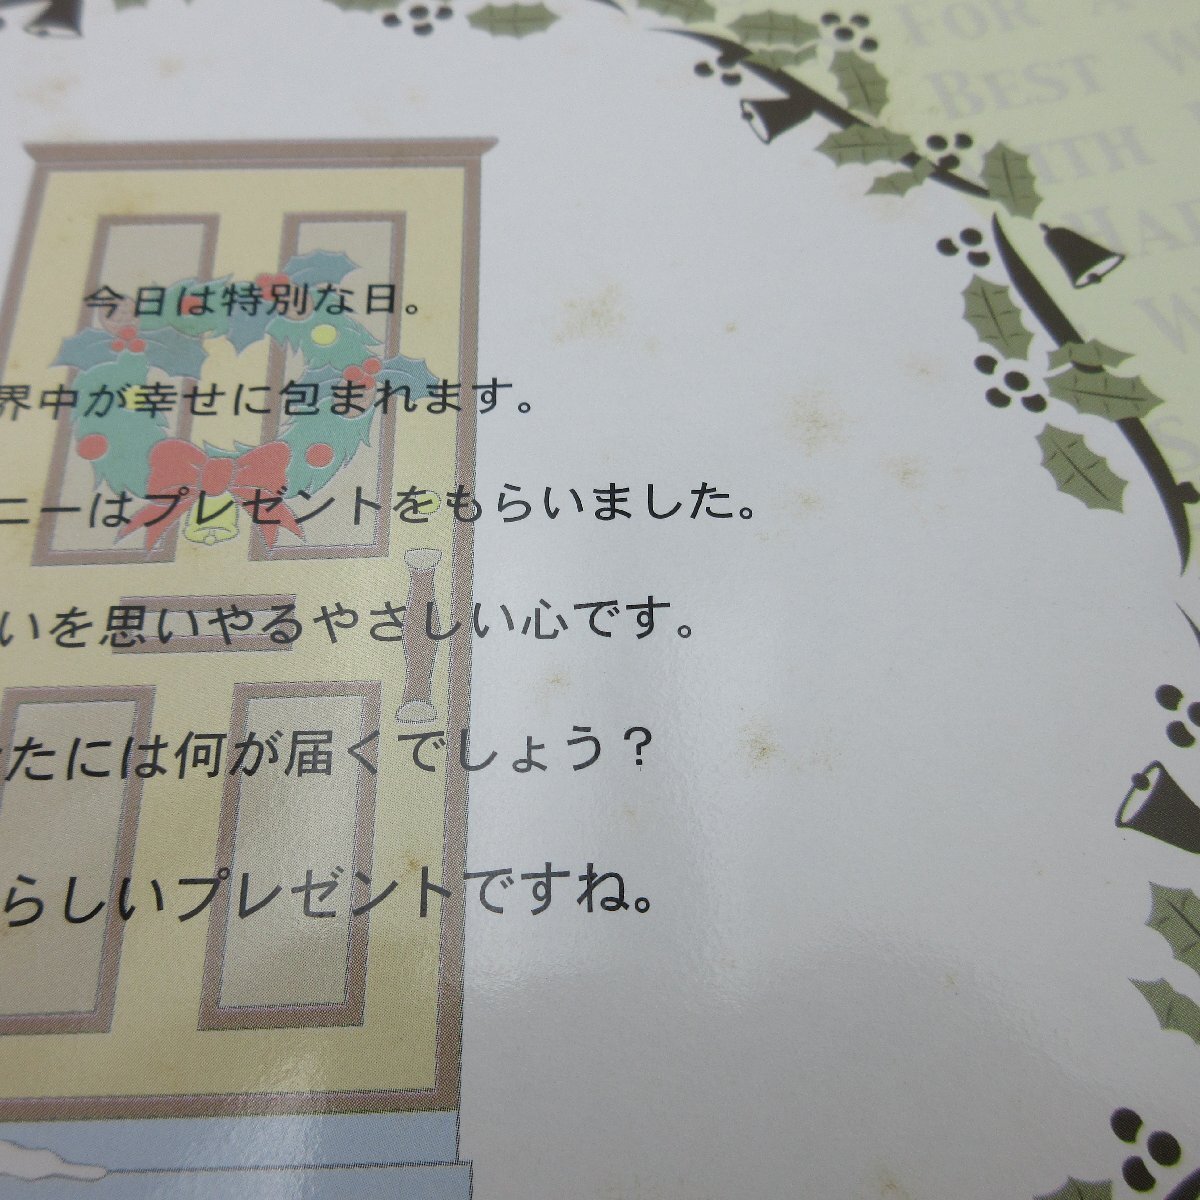 今日は特別な日。
界中が幸せに包まれます。
ニーはプレゼントをもらいました。
いを思いやるやさしい心です。
たには何が届くでしょう？
らしいプレゼントですね。
FOR A
BEST W
WITH
HAP
W
S